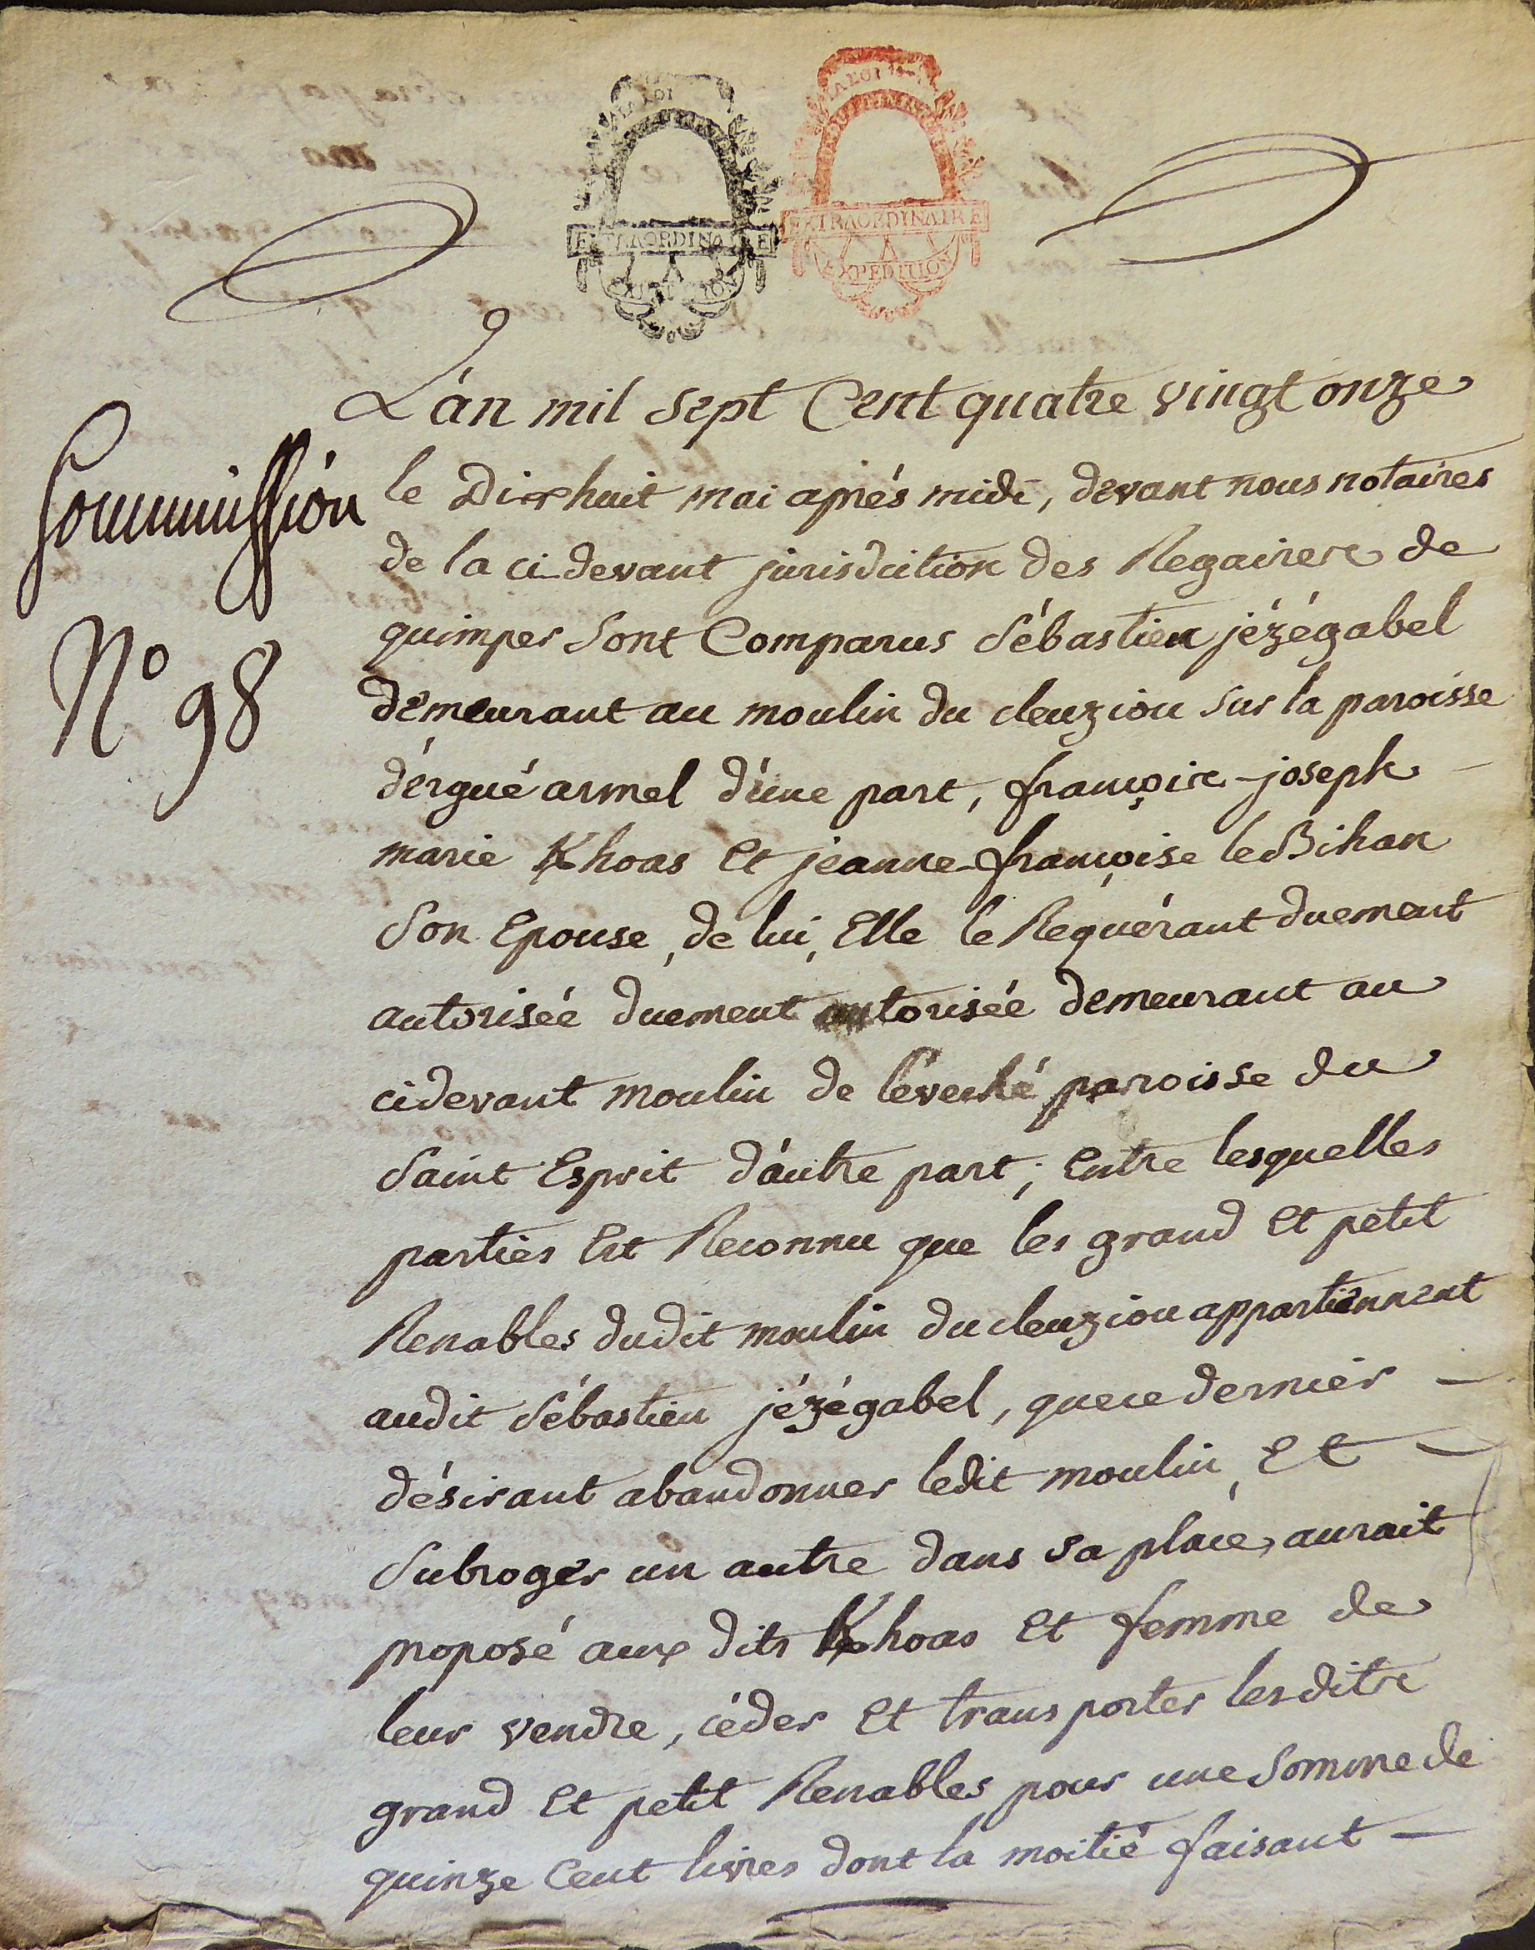 LA LOI
EXTRAORDINAIRE
EXPEDITION
LA LOI
EXTRAORDINAIRE
EXPEDITION
L'án mil sept Cent quatre vingt onze
le Dixhuit mai aprés midi, devant nous notaires
de la ci-devant jurisdiction des Regaires de
quimper sont Comparus sébastien jézégabel
demeurant au moulin du cleuziou sur la paroisse
d'ergué armel d'une part, françois-joseph
marie Khoas Et jeanne-françoise le Bihan
son Epouse, de lui, Elle le Requérant duement
autorisée duement autorisée demeurant au
cidevant moulin de l'évêché paroisse du
saint Esprit d'autre part; Entre lesquelles
parties Est Reconnu que les grand Et petit
Renables dudit moulin du cleuziou appartiennent
audit sébastien jézégabel, que ce dernier
désirant abandonner ledit moulin, Et
subroger un autre dans sa place, aurait
proposé aux dits Khoas Et femme de
leur vendre, céder Et transporter lesdits
grand Et petit Renables pour une somme de
quinze Cent livres dont la moitié faisant
Commission
N° 98